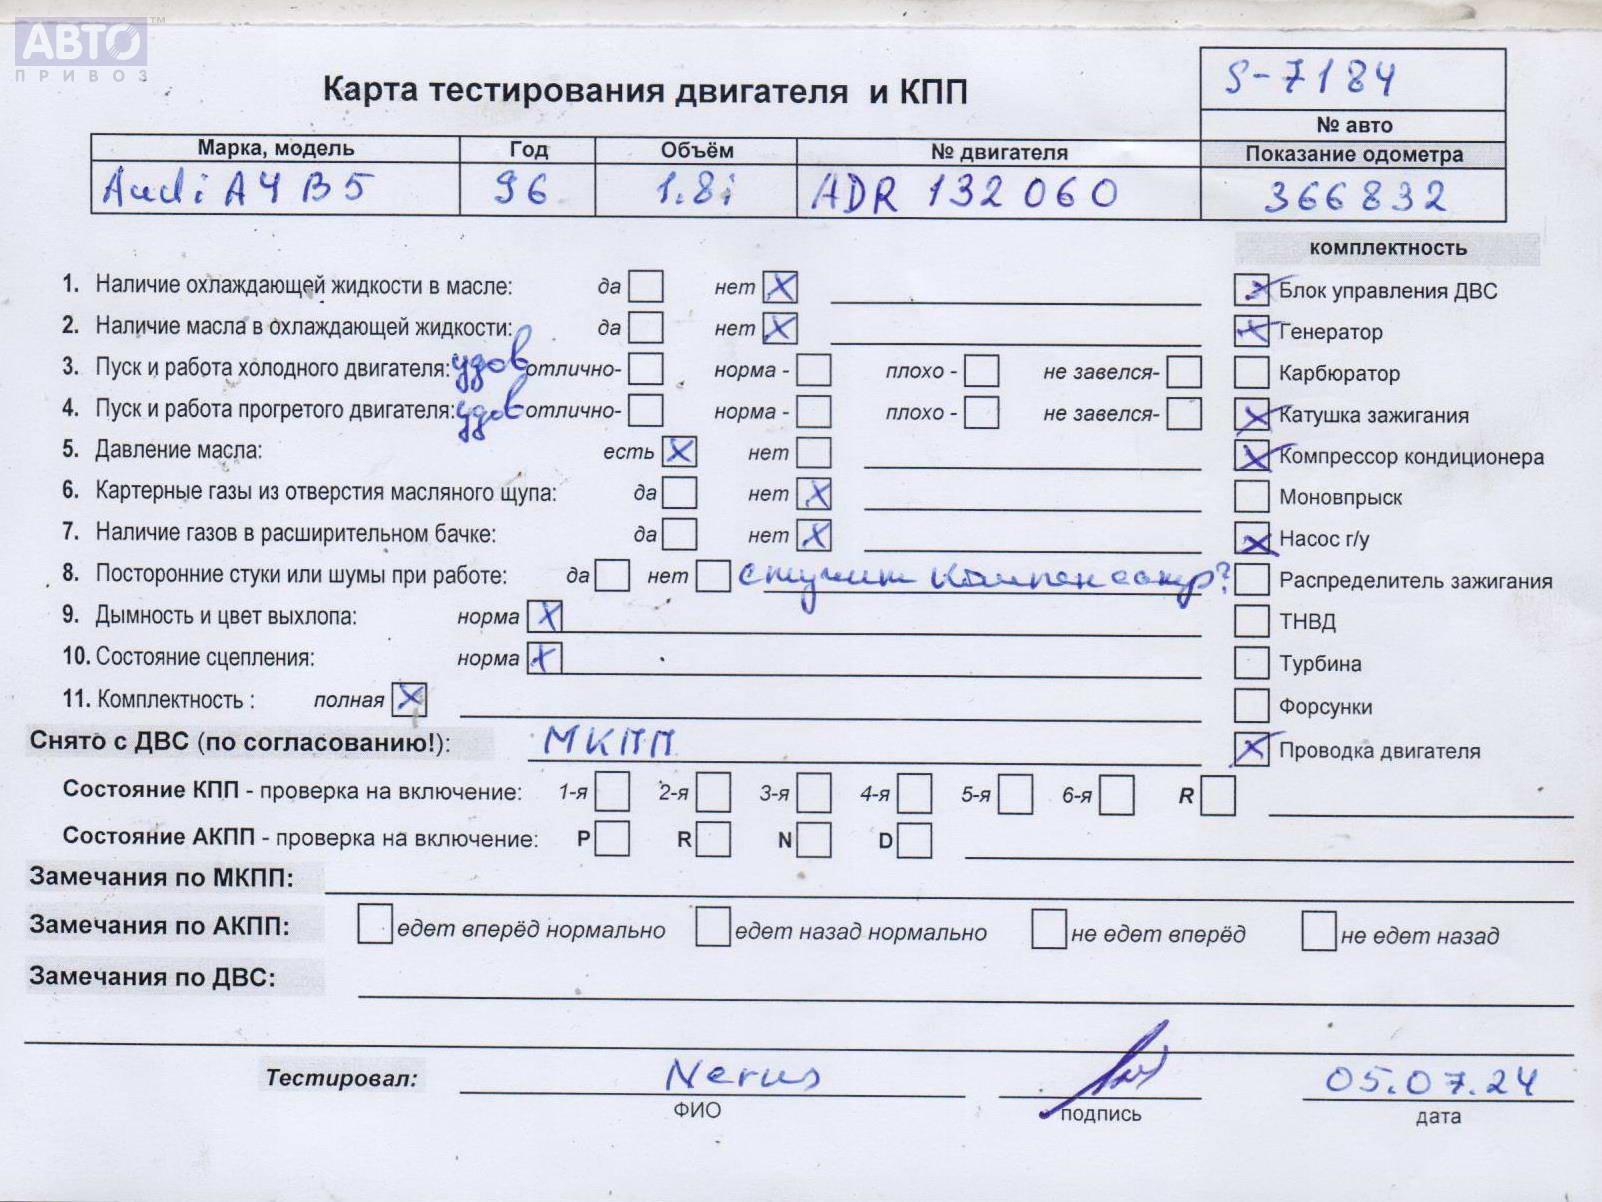 АВТО™
ПРИВОЗ
Карта тестирования двигателя и КПП
S-7184
№ авто
Марка, модель Год Объём № двигателя Показание одометра
Audi A4 B5 96 1.8i ADR 132060 366832
комплектность
1. Наличие охлаждающей жидкости в масле: да нет X
Блок управления ДВС
2. Наличие масла в охлаждающей жидкости: да нет X
Генератор
3. Пуск и работа холодного двигателя: удов отлично- норма - плохо - не завелся-
Карбюратор
4. Пуск и работа прогретого двигателя: удов отлично- норма - плохо - не завелся-
Катушка зажигания
5. Давление масла: есть X нет
Компрессор кондиционера
6. Картерные газы из отверстия масляного щупа: да нет X
Моновпрыск
7. Наличие газов в расширительном бачке: да нет X
Насос г/у
8. Посторонние стуки или шумы при работе: да нет стучит компенсатор?
Распределитель зажигания
9. Дымность и цвет выхлопа: норма X
ТНВД
10. Состояние сцепления: норма X
Турбина
11. Комплектность : полная X
Форсунки
Снято с ДВС (по согласованию!): МКПП
Проводка двигателя
Состояние КПП - проверка на включение: 1-я 2-я 3-я 4-я 5-я 6-я R
Состояние АКПП - проверка на включение: P R N D
Замечания по МКПП:
Замечания по АКПП: едет вперёд нормально едет назад нормально не едет вперёд не едет назад
Замечания по ДВС:
Тестировал: Nerus 05.07.24
ФИО подпись дата